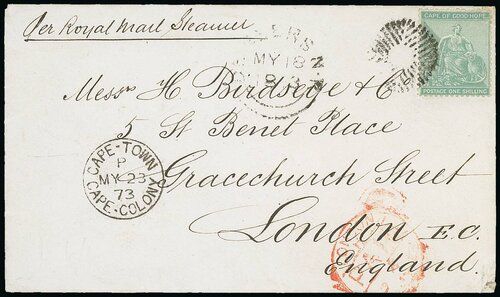 Per Royal Mail Steamer
CAPE OF GOOD HOPE
POSTAGE ONE SHILLING
MY 18
Messrs H. Birdseye & Co
5 St Benet Place
Gracechurch Street
London E.C.
England.
CAPE-TOWN
P
MY 23
73
CAPE-COLONY